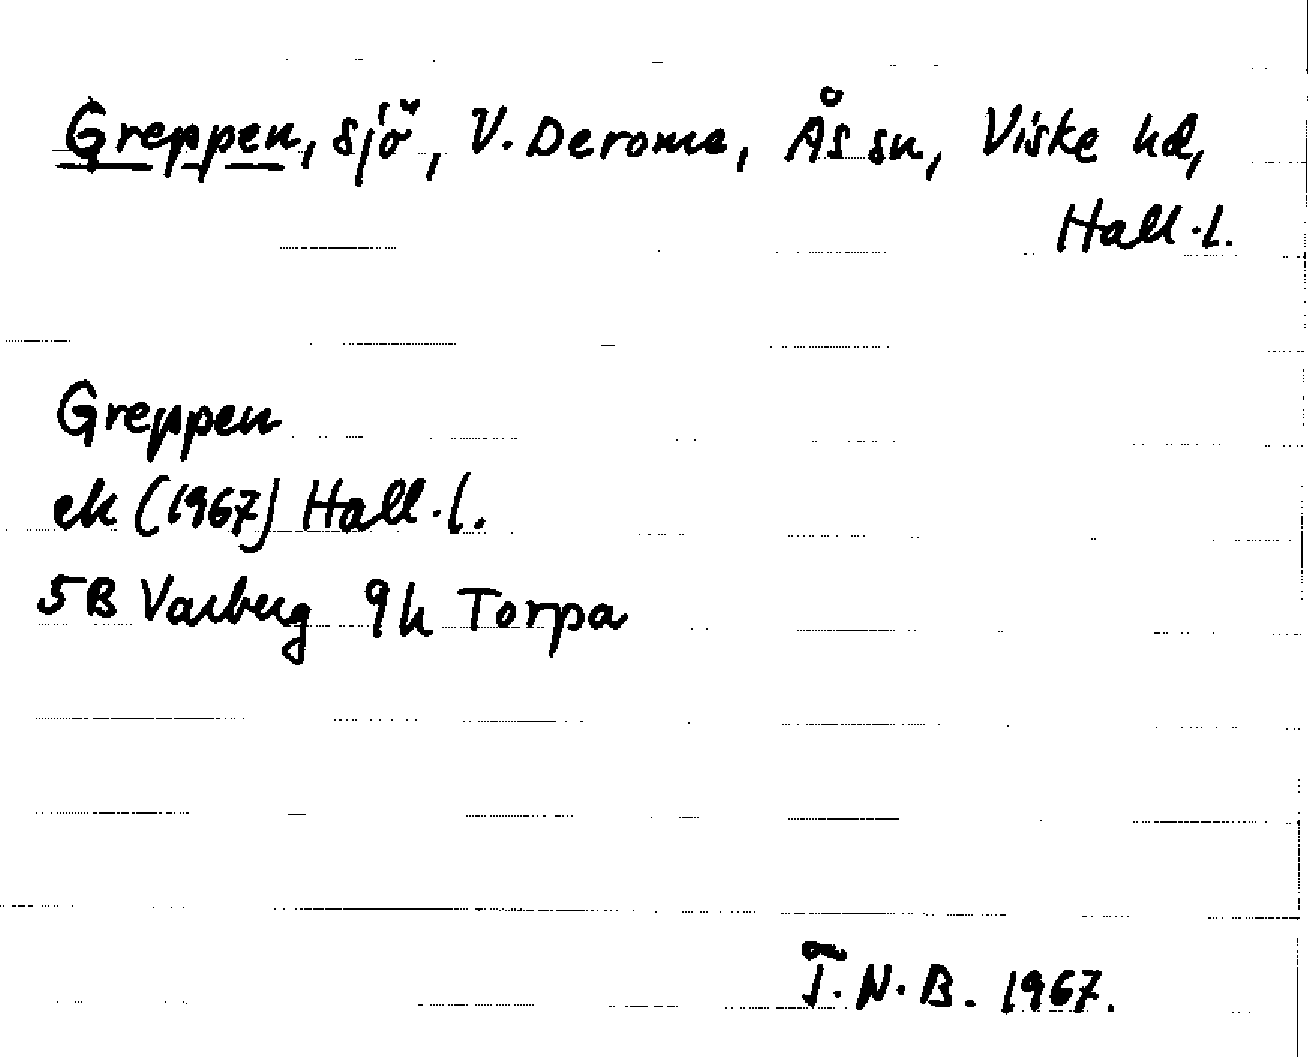 Greppen, sjö, V. Derome, Ås sn, Viske hd,
Hall.l.
Greppen
ek (1967) Hall.l.
5B Varberg 9h Torpa
T.N.B. 1967.